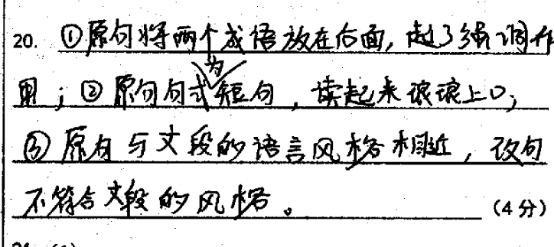 20. ①原句将两个成语放在后面,起了强调作
用;②原句句式为短句,读起来琅琅上口;
③原句与文段的语言风格相近,改句
不符合文段的风格。(4分)